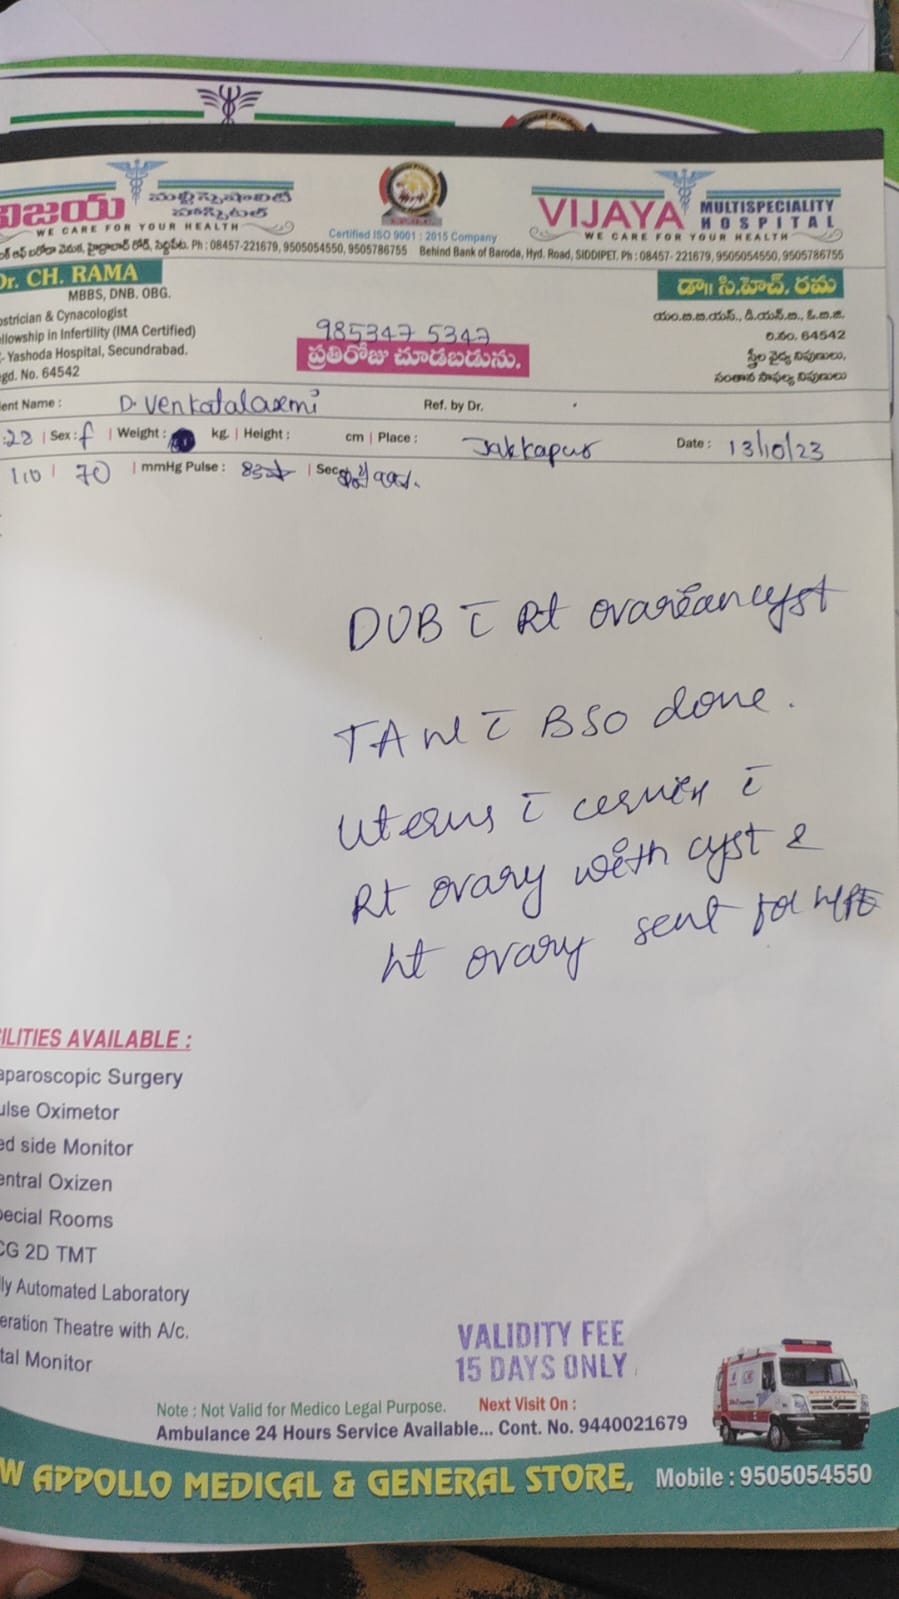 విజయ మల్టిస్పెషాలిటీ హాస్పిటల్
WE CARE FOR YOUR HEALTH
Certified ISO 9001 : 2015 Company
VIJAYA MULTISPECIALITY HOSPITAL
WE CARE FOR YOUR HEALTH
హైద్రాబాద్ రోడ్, సిద్దిపేట. Ph : 08457-221679, 9505054550, 9505786755
Behind Bank of Baroda, Hyd. Road, SIDDIPET. Ph : 08457- 221679, 9505054550, 9505786755
Dr. CH. RAMA
MBBS, DNB. OBG.
stetrician & Cynacologist
ellowship in Infertility (IMA Certified)
- Yashoda Hospital, Secundrabad.
gd. No. 64542
డా॥ సి.హెచ్. రమ
యం.బి.బి.యస్., డి.యన్.బి., ఓ.బి.జి.
రి.నం. 64542
స్త్రీల వైద్య నిపుణులు,
సంతాన సాఫల్య నిపుణులు
985347 5347
ప్రతిరోజు చూడబడును.
ent Name : D. Venkatalaxmi Ref. by Dr.
: 28 | Sex : f | Weight : kg. | Height : cm | Place : Jakkapur Date : 13/10/23
110 | 70 | mmHg Pulse : 83 |
DUB c̄ Rt ovarian cyst
TAH c̄ BSO done.
Uterus c̄ cervix c̄
Rt ovary with cyst &
Lt ovary sent for HPE
CILITIES AVAILABLE :
aparoscopic Surgery
ulse Oximetor
ed side Monitor
entral Oxizen
pecial Rooms
CG 2D TMT
lly Automated Laboratory
eration Theatre with A/c.
tal Monitor
VALIDITY FEE
15 DAYS ONLY
Note : Not Valid for Medico Legal Purpose. Next Visit On :
Ambulance 24 Hours Service Available... Cont. No. 9440021679
W APPOLLO MEDICAL & GENERAL STORE, Mobile : 9505054550